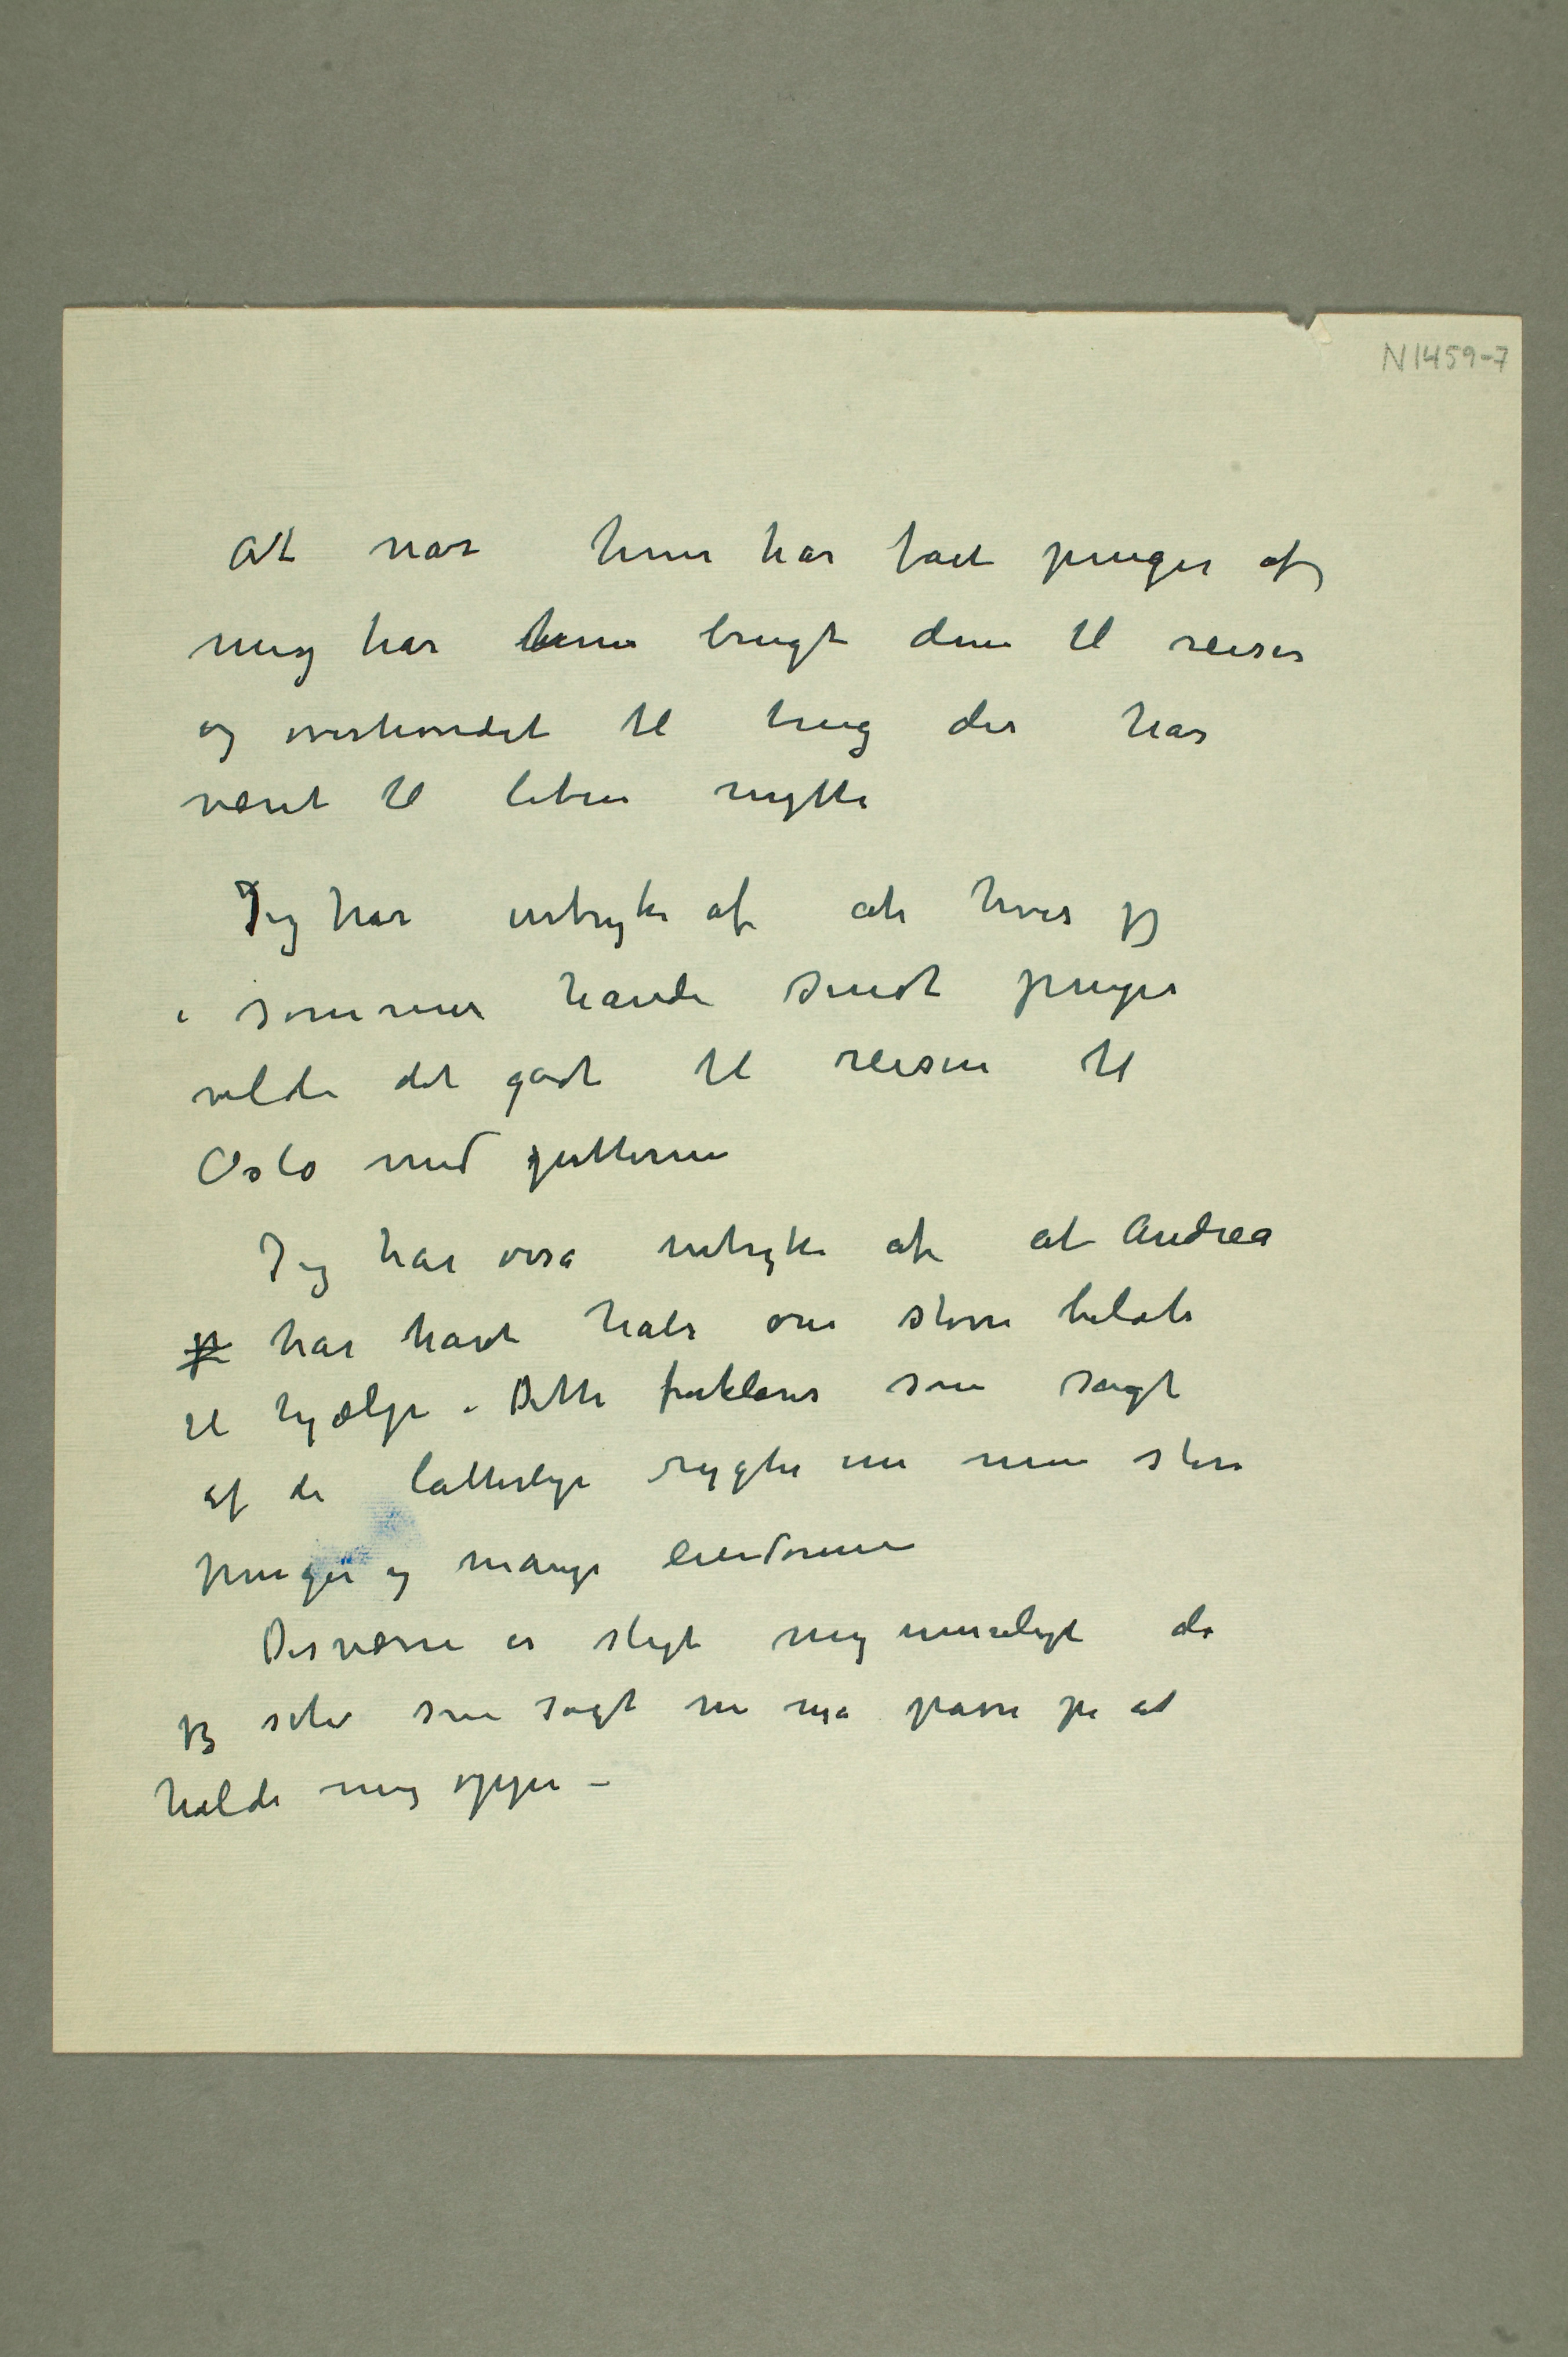 N1459-7
at når hun har fået penger af
mig har hun brugt dem til reiser
og overhovedet til ting der har
været til liten nytte
Jeg har intryk af at hvis jeg
i sommer havde sendt penger
vilde det gåt til reisen til
Oslo med gutterne
Jeg har også intryk af at Andrea
har havt håb om større beløb
til hjælp. Dette forklares som sagt
af de latterlige rygter om mine store
penger og mange eiendomme
Desværre er sligt mig umueligt da
jeg selv som sagt nu må passe på at
holde mig oppe –